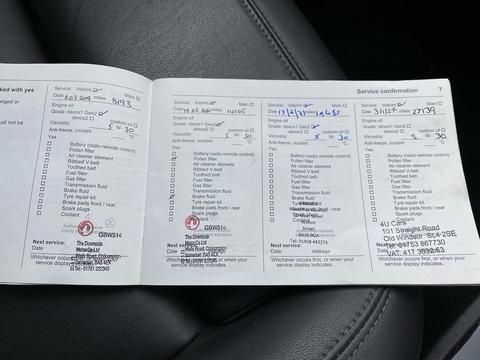 ked with yes
nged or
ust not be
Service: Interim Main
Date miles 8193
Engine oil
Grade: dexos1 Gen2
dexos2 custom oil
Viscosity: 5 W- 30
Anti-freeze, coolant °C
Yes
Battery (radio remote control)
Pollen filter
Air cleaner element
Ribbed V-belt
Toothed belt
Fuel filter
Gas filter
Transmission fluid
Brake fluid
Tyre repair kit
Brake pads front / rear
Spark plugs
Coolant
GBW514
The Downside
Motor Co Ltd
Wells Road, Chilcompton
Somerset, BA3 4EX
Tel: 01761 232345
Next service:
Date
Whichever occurs first, or when your
service display indicates.
Service confirmation 7
Service: Interim Main
Date miles 14105
Engine oil
Grade: dexos1 Gen2
dexos2 custom oil
Viscosity: 5 W- 30
Anti-freeze, coolant °C
Yes
Battery (radio remote control)
Pollen filter
Air cleaner element
Ribbed V-belt
Toothed belt
Fuel filter
Gas filter
Transmission fluid
Brake fluid
Tyre repair kit
Brake pads front / rear
Spark plugs
Coolant
GBW514
The Downside
Motor Co Ltd
Wells Road, Chilcompton
Somerset, BA3 4EX
Tel: 01761 232345
Next service:
Date
Whichever occurs first, or when your
service display indicates.
Service: Interim Main
Date 17/2/21 miles
Engine oil
Grade: dexos1 Gen2
dexos2 custom oil
Viscosity: 5 W- 30
Anti-freeze, coolant °C
Yes
Battery (radio remote control)
Pollen filter
Air cleaner element
Ribbed V-belt
Toothed belt
Fuel filter
Gas filter
Transmission fluid
Brake fluid
Tyre repair kit
Brake pads front / rear
Spark plugs
Coolant
Tel: 01458 442275
Next service:
Date mileage
Whichever occurs first, or when your
service display indicates.
Service: Interim Main
Date 3/1/24 miles 27139
Engine oil
Grade: dexos1 Gen2
dexos2 custom oil
Viscosity: 5 W- 30
Anti-freeze, coolant °C
Yes
Battery (radio remote control)
Pollen filter
Air cleaner element
Ribbed V-belt
Toothed belt
Fuel filter
Gas filter
Transmission fluid
Brake fluid
Tyre repair kit
Brake pads front / rear
Spark plugs
Coolant
4U Cars
101 Straight Road
Old Windsor SL4 2SE
Tel: 01753 867730
Next service:
Date
Whichever occurs first, or when your
service display indicates.